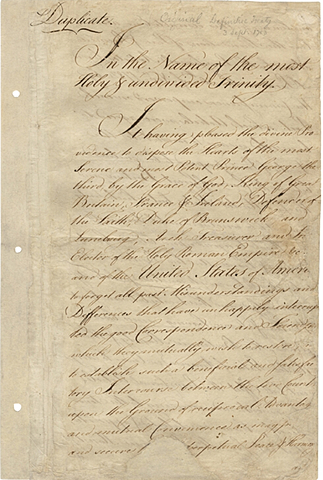 Duplicate. Original Definitive Treaty
3 Sept. 1783
In the Name of the most
Holy & undivided Trinity.
It having pleased the divine Pro
vidence to dispose the Hearts of the most
Serene and most Potent Prince George the
third, by the Grace of God, King of Great
Britain, France & Ireland, Defender of
the Faith, Duke of Brunswick and
Lunebourg, Arch Treasurer, and
Elector of the Holy Roman Empire
and of the United States of America
to forget all past Misunderstandings and
Differences that have unhappily interrup
ted the good Correspondence and Friendship
which they mutually wish to restore
to establish such a beneficial and satisfac
tory Intercourse between the two Countries
upon the Ground of reciprocal Advantages
and mutual Convenience as may
and secure Perpetual Peace & Harmony